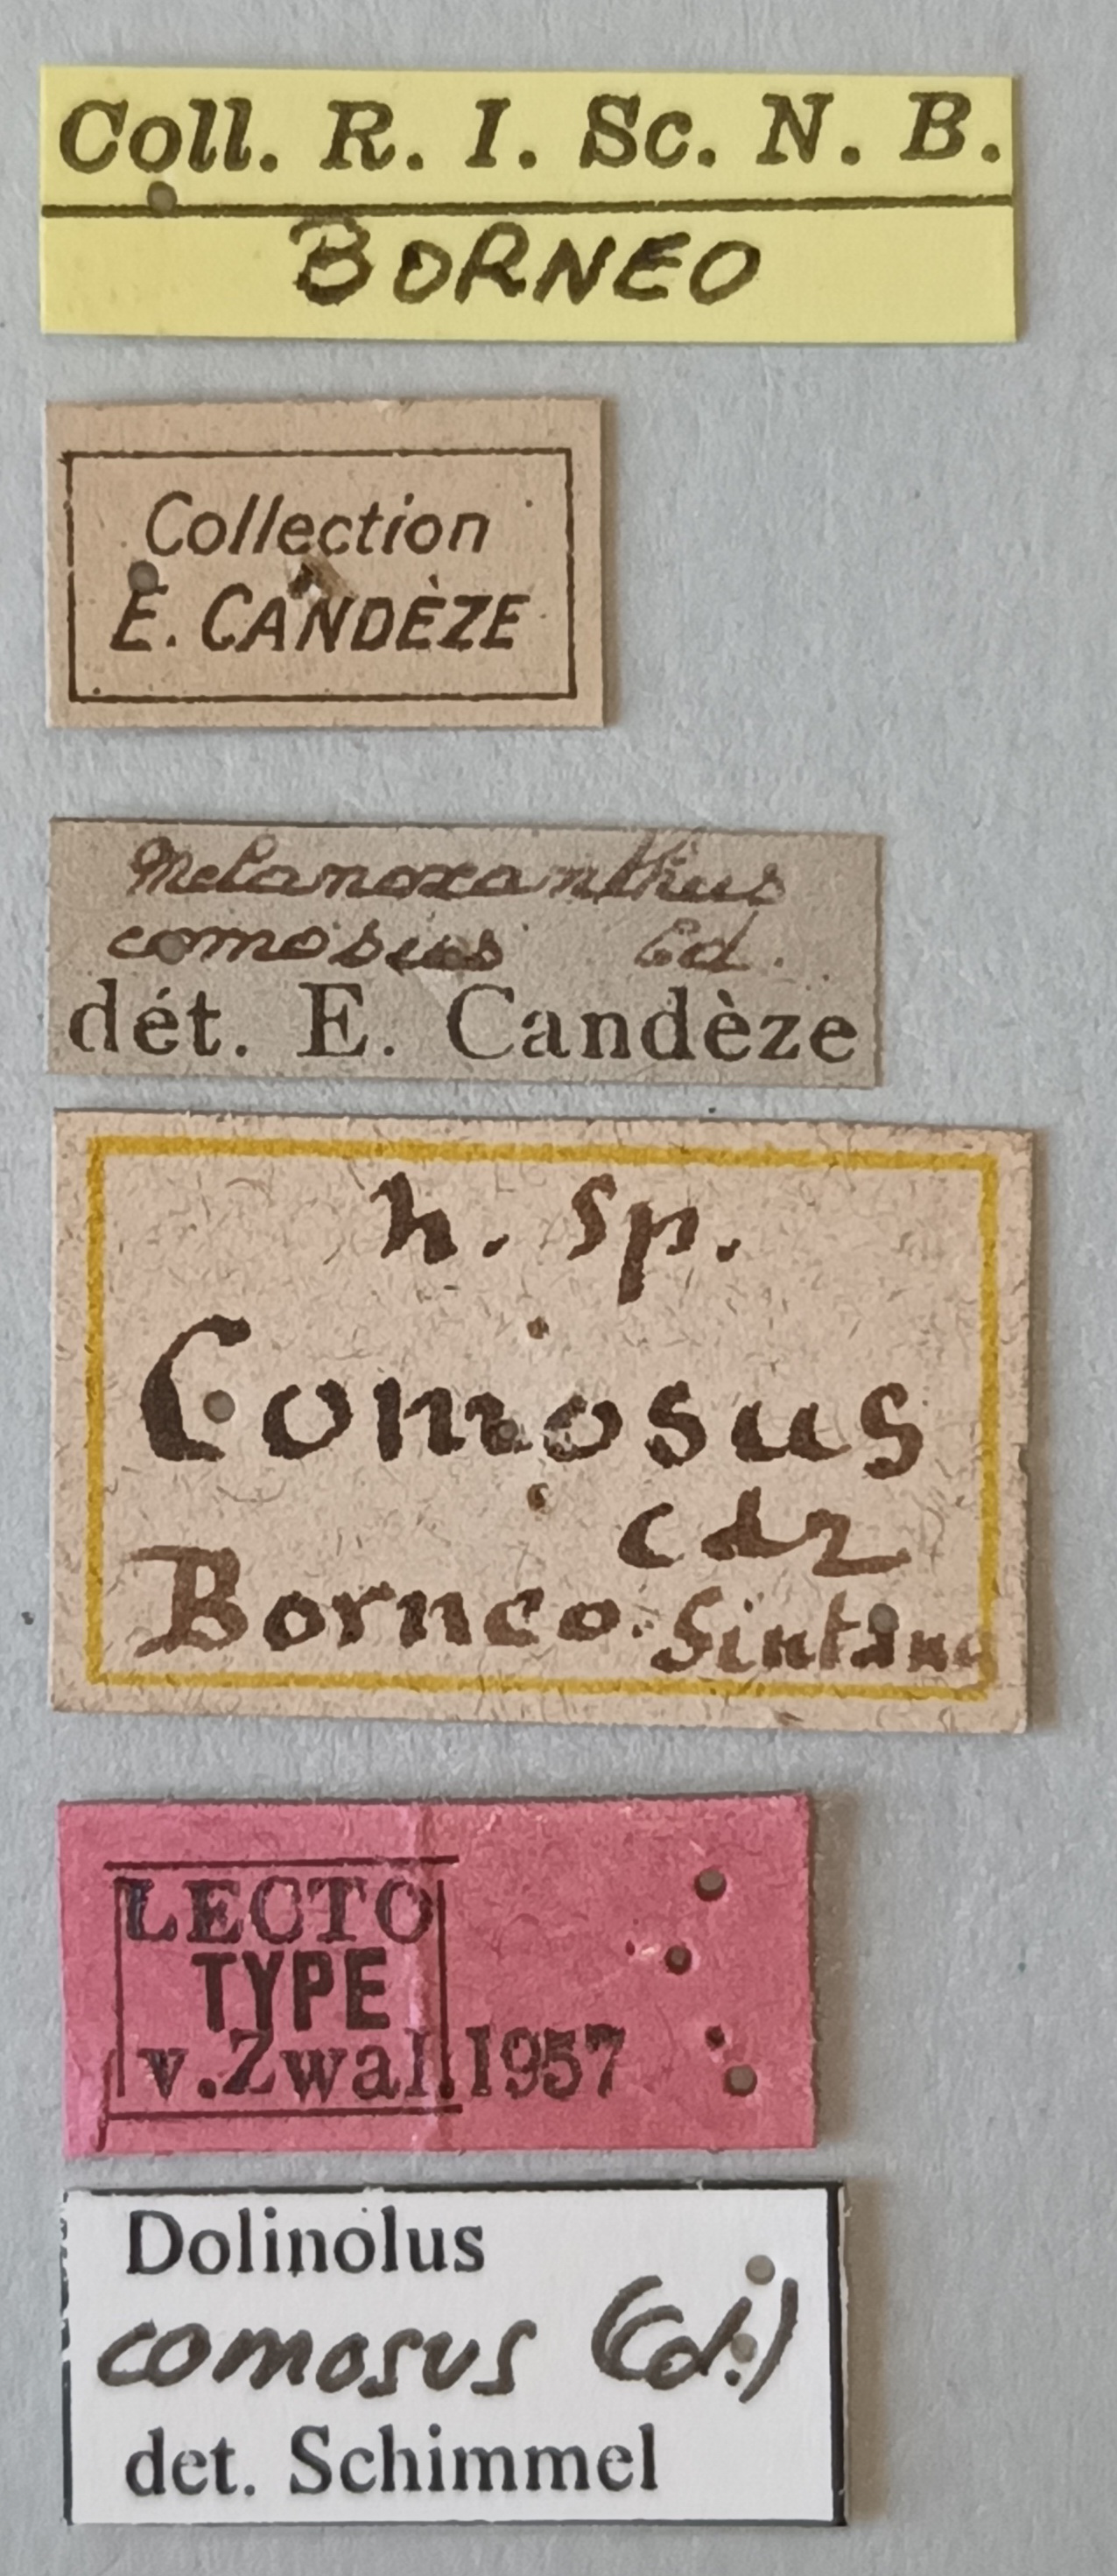 Coll. R. I. Sc. N. B.
BORNEO
Collection
E. CANDÈZE
Melanoxanthus
comosus Cd.
dét. E. Candèze
n. sp.
Comosus
cdz
Borneo. Sintang
LECTO
TYPE
v.Zwal.1957
Dolinolus
comosus (Cd.)
det. Schimmel